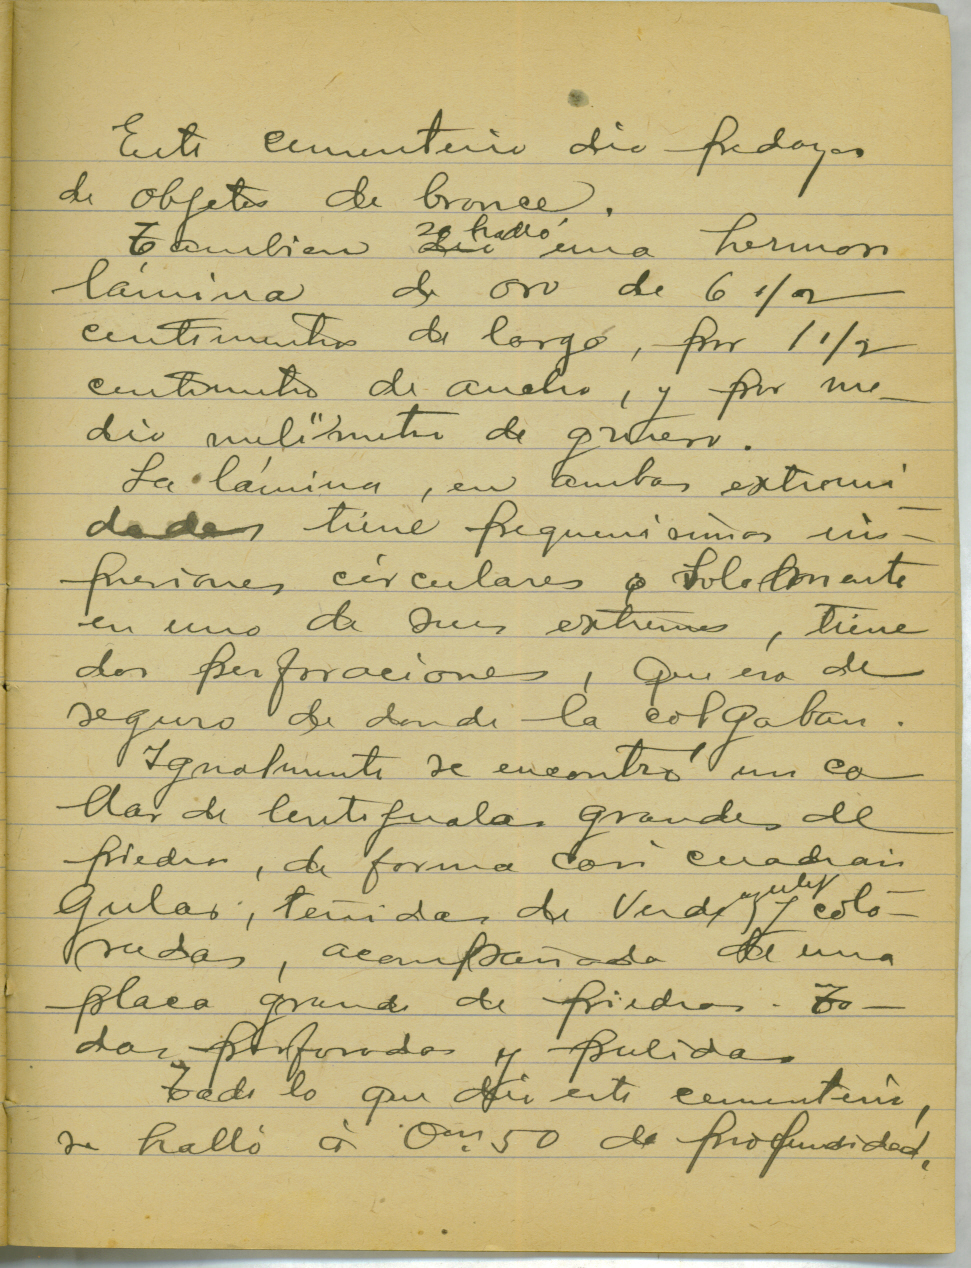 Este cementerio dio pedazos
de objetos de bronce.
Tambien dio se halló una hermosa
lámina de oro de 6 1/2
centimentros de largo, por 1 1/2
centimetro de ancho, y por me-
dio milimetro de grueso.
La lámina, en ambas extremi
dades tiene pequenisimas im-
presiones circulares y solamente
en uno de sus extremos, tiene
dos perforaciones, que era de
seguro de donde la colgaban.
Igualmente se encontró un co
llar de lentejuelas grandes de
piedra, de forma casi cuadran
gular, teñidas de verde azules y colo-
radas, acompañada de una
placa grande de piedra. To-
das perforadas y pulidas
Todo lo que dio este cementerio,
se halló á 0m.50 de profundidad.